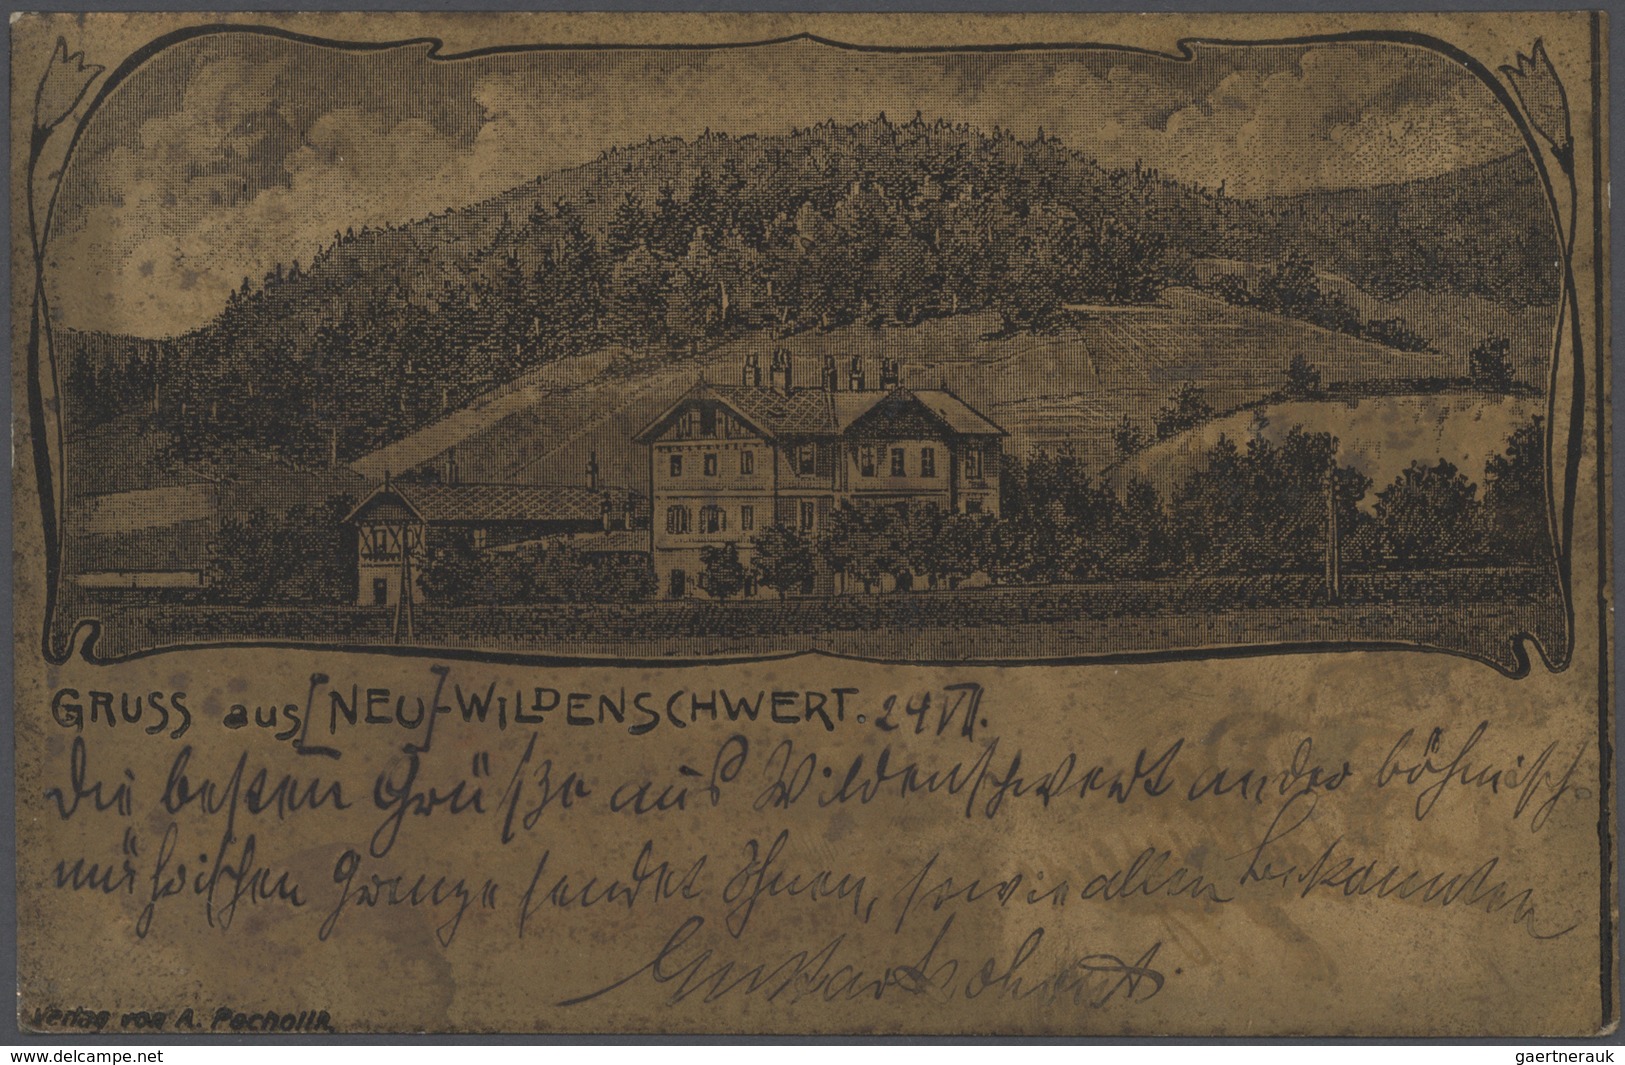 GRUSS aus [NEU]-WILDENSCHWERT. 24 VII.
Die besten Grüße aus Wildenschwert an der böhmisch-
mährischen Grenze sendet Ihnen, sowie allen Bekannten
Verlag von A. Pacholik
www.delcampe.net
gaertnerauk